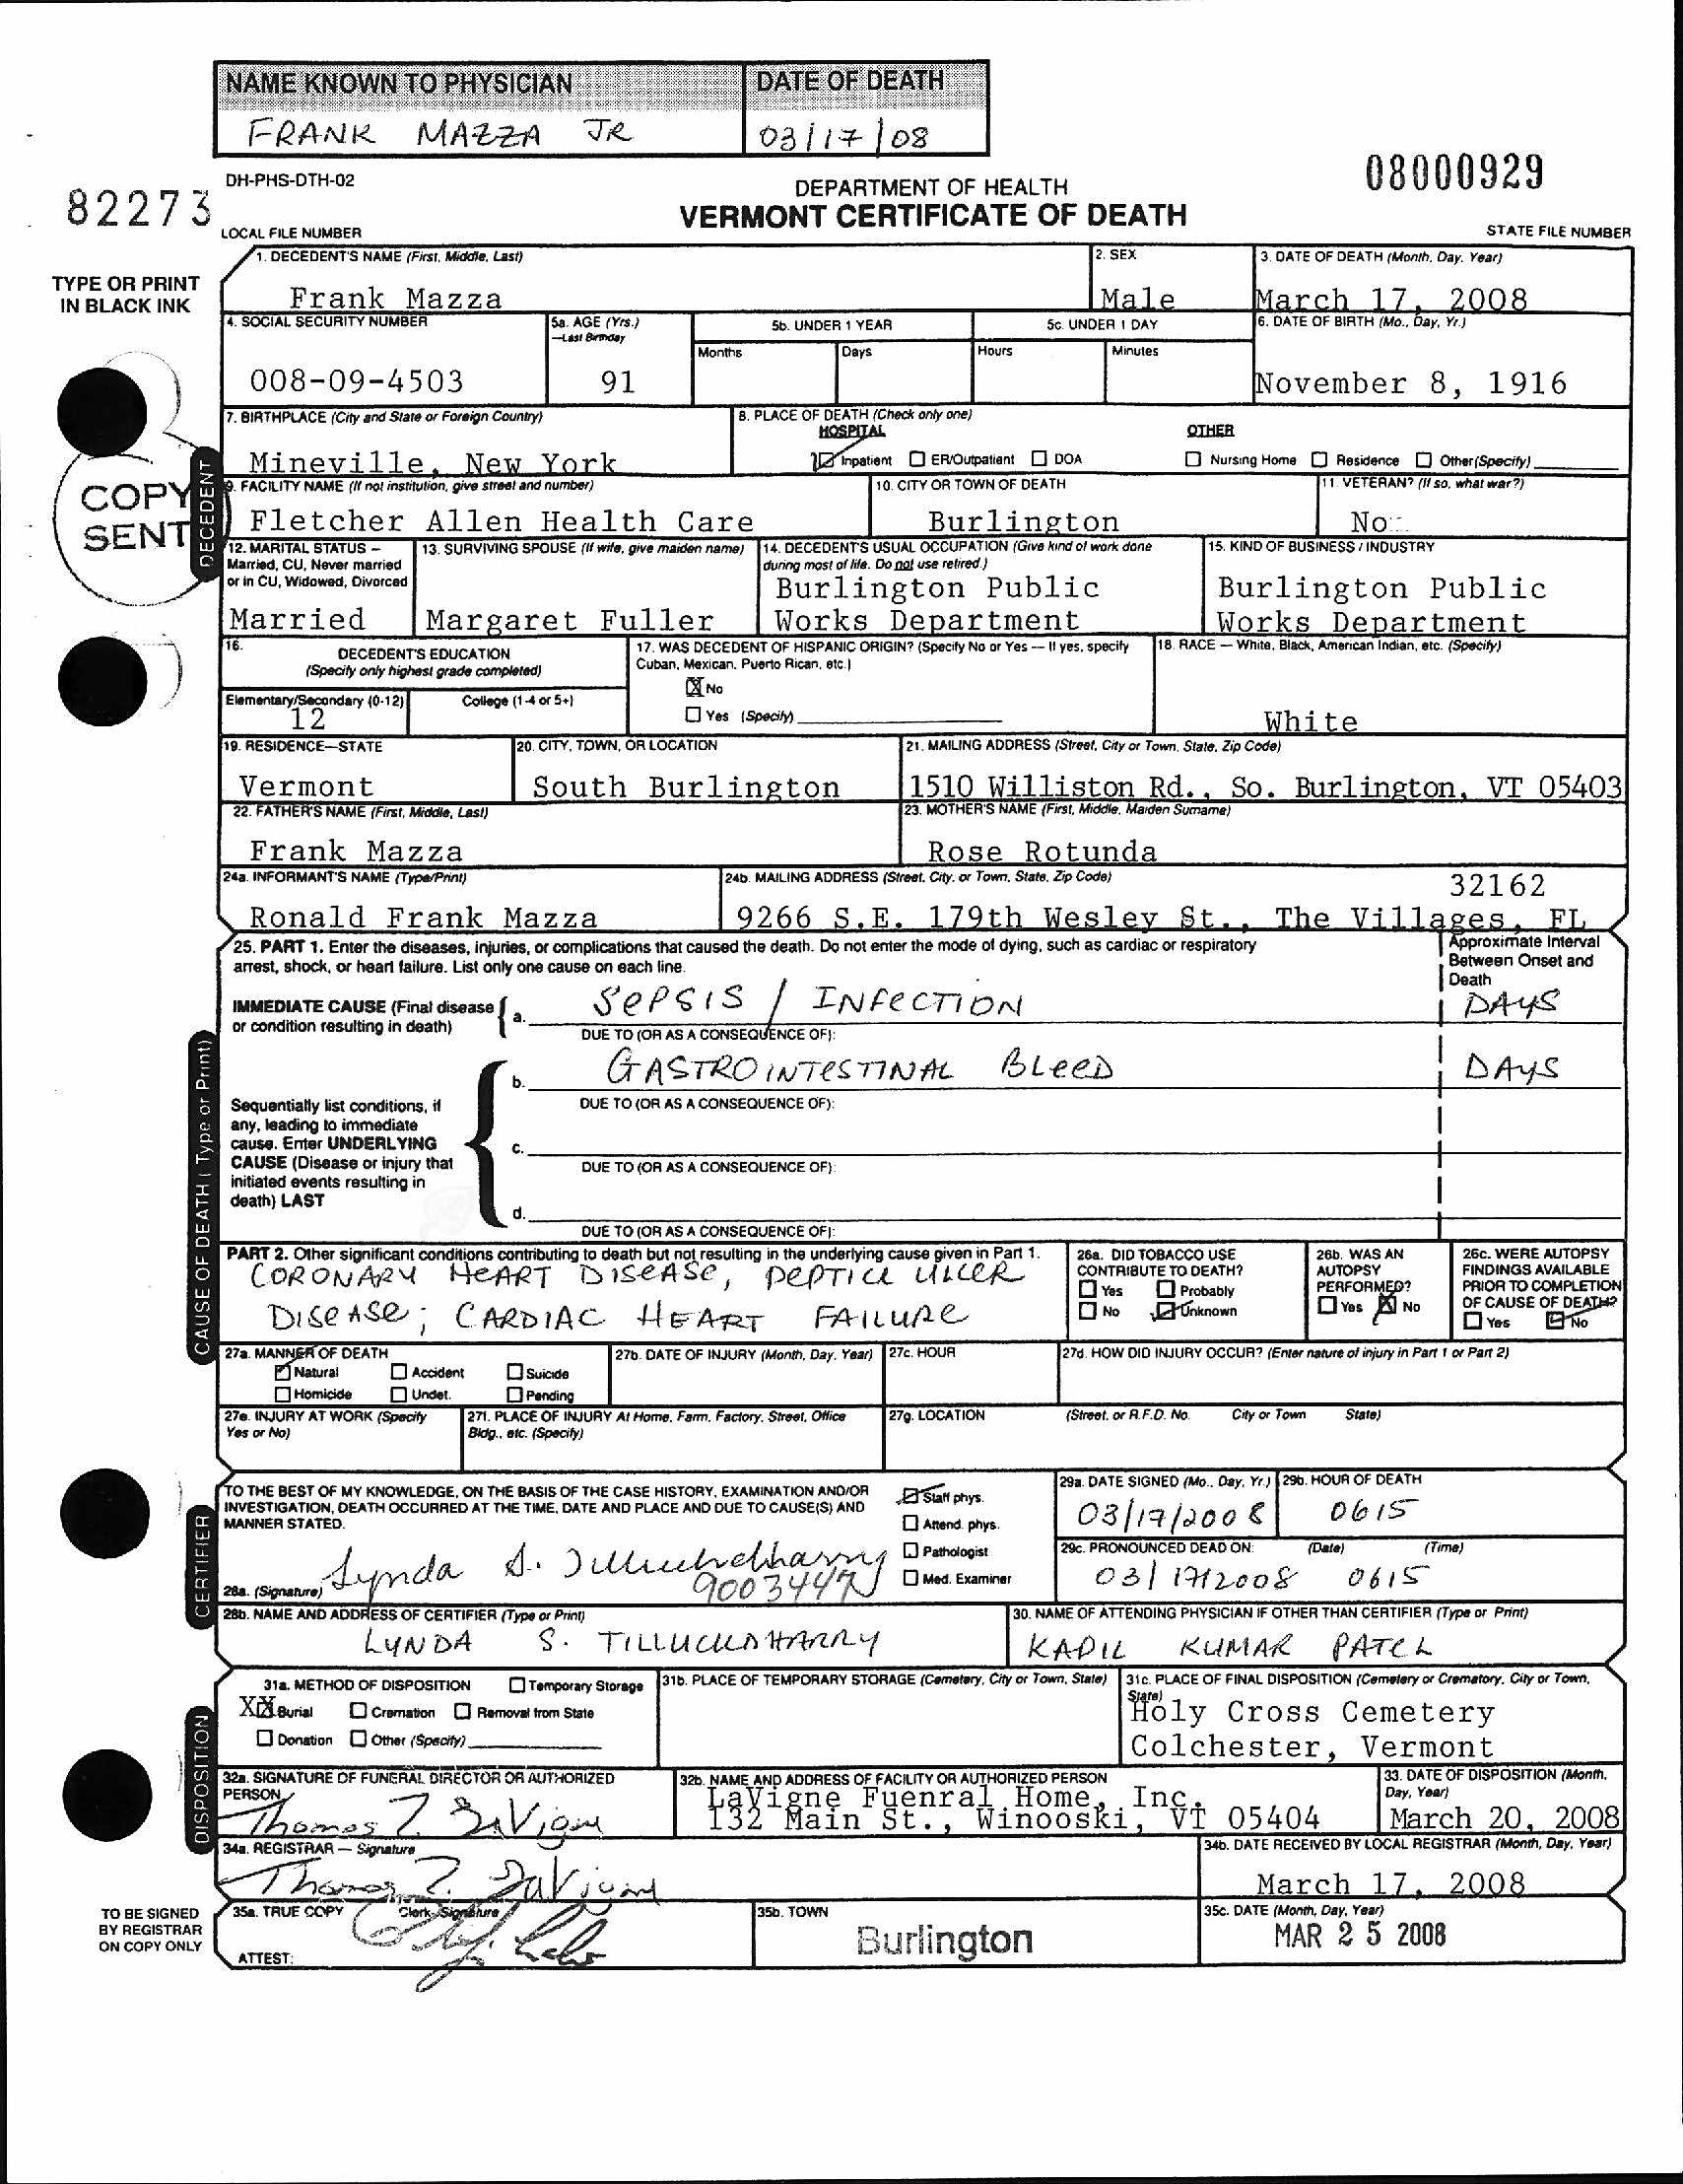 NAME KNOWN TO PHYSICIAN DATE OF DEATH
FRANK MAZZA JR 03/17/08
DH-PHS-DTH-02
08000929
82273
DEPARTMENT OF HEALTH
VERMONT CERTIFICATE OF DEATH
LOCAL FILE NUMBER
STATE FILE NUMBER
TYPE OR PRINT
IN BLACK INK
1. DECEDENT'S NAME (First, Middle, Last) 2. SEX 3. DATE OF DEATH (Month, Day, Year)
Frank Mazza Male March 17, 2008
4. SOCIAL SECURITY NUMBER 5a. AGE (Yrs.) 5b. UNDER 1 YEAR 5c. UNDER 1 DAY 6. DATE OF BIRTH (Mo., Day, Yr.)
—Last Birthday
Months Days Hours Minutes
008-09-4503 91 November 8, 1916
7. BIRTHPLACE (City and State or Foreign Country) 8. PLACE OF DEATH (Check only one)
HOSPITAL OTHER
Mineville, New York Inpatient ER/Outpatient DOA Nursing Home Residence Other (Specify)
COPY
SENT
DECEDENT
9. FACILITY NAME (If not institution, give street and number) 10. CITY OR TOWN OF DEATH 11. VETERAN? (If so, what war?)
Fletcher Allen Health Care Burlington No
12. MARITAL STATUS – 13. SURVIVING SPOUSE (If wife, give maiden name) 14. DECEDENT'S USUAL OCCUPATION (Give kind of work done 15. KIND OF BUSINESS / INDUSTRY
Married, CU, Never married during most of life. Do not use retired.)
or in CU, Widowed, Divorced
Burlington Public Burlington Public
Married Margaret Fuller Works Department Works Department
16. DECEDENT'S EDUCATION 17. WAS DECEDENT OF HISPANIC ORIGIN? (Specify No or Yes — If yes, specify 18. RACE — White, Black, American Indian, etc. (Specify)
(Specify only highest grade completed) Cuban, Mexican, Puerto Rican, etc.)
X No
Elementary/Secondary (0-12) College (1-4 or 5+)
12 Yes (Specify) White
19. RESIDENCE—STATE 20. CITY, TOWN, OR LOCATION 21. MAILING ADDRESS (Street, City or Town, State, Zip Code)
Vermont South Burlington 1510 Williston Rd., So. Burlington, VT 05403
22. FATHER'S NAME (First, Middle, Last) 23. MOTHER'S NAME (First, Middle, Maiden Surname)
Frank Mazza Rose Rotunda
24a. INFORMANT'S NAME (Type/Print) 24b. MAILING ADDRESS (Street, City, or Town, State, Zip Code) 32162
Ronald Frank Mazza 9266 S.E. 179th Wesley St., The Villages, FL
25. PART 1. Enter the diseases, injuries, or complications that caused the death. Do not enter the mode of dying, such as cardiac or respiratory
arrest, shock, or heart failure. List only one cause on each line.
Approximate Interval
Between Onset and
Death
IMMEDIATE CAUSE (Final disease
or condition resulting in death)
a. SEPSIS / INFECTION DAYS
DUE TO (OR AS A CONSEQUENCE OF):
b. GASTROINTESTINAL BLEED DAYS
DUE TO (OR AS A CONSEQUENCE OF):
Sequentially list conditions, if
any, leading to immediate
cause. Enter UNDERLYING
CAUSE (Disease or injury that
initiated events resulting in
death) LAST
c.
DUE TO (OR AS A CONSEQUENCE OF):
d.
DUE TO (OR AS A CONSEQUENCE OF):
CAUSE OF DEATH (Type or Print)
PART 2. Other significant conditions contributing to death but not resulting in the underlying cause given in Part 1.
CORONARY HEART DISEASE, PEPTICE ULCER
DISEASE; CARDIAC HEART FAILURE
26a. DID TOBACCO USE
CONTRIBUTE TO DEATH?
Yes Probably
No Unknown
26b. WAS AN
AUTOPSY
PERFORMED?
Yes X No
26c. WERE AUTOPSY
FINDINGS AVAILABLE
PRIOR TO COMPLETION
OF CAUSE OF DEATH?
Yes No
27a. MANNER OF DEATH 27b. DATE OF INJURY (Month, Day, Year) 27c. HOUR 27d. HOW DID INJURY OCCUR? (Enter nature of injury in Part 1 or Part 2)
Natural Accident Suicide
Homicide Undet. Pending
27e. INJURY AT WORK (Specify 27f. PLACE OF INJURY At Home, Farm, Factory, Street, Office 27g. LOCATION (Street, or R.F.D. No. City or Town State)
Yes or No) Bldg., etc. (Specify)
CERTIFIER
TO THE BEST OF MY KNOWLEDGE, ON THE BASIS OF THE CASE HISTORY, EXAMINATION AND/OR
INVESTIGATION, DEATH OCCURRED AT THE TIME, DATE AND PLACE AND DUE TO CAUSE(S) AND
MANNER STATED.
Staff phys.
Attend. phys.
Pathologist
Med. Examiner
29a. DATE SIGNED (Mo., Day, Yr.) 29b. HOUR OF DEATH
03/17/2008 0615
29c. PRONOUNCED DEAD ON: (Date) (Time)
03/17/2008 0615
28a. (Signature) Lynda S. Tilluckdharry
9003447
28b. NAME AND ADDRESS OF CERTIFIER (Type or Print) 30. NAME OF ATTENDING PHYSICIAN IF OTHER THAN CERTIFIER (Type or Print)
LYNDA S. TILLUCKDHARRY KAPIL KUMAR PATEL
DISPOSITION
31a. METHOD OF DISPOSITION Temporary Storage 31b. PLACE OF TEMPORARY STORAGE (Cemetery, City or Town, State) 31c. PLACE OF FINAL DISPOSITION (Cemetery or Crematory, City or Town,
State)
XX Burial Cremation Removal from State Holy Cross Cemetery
Donation Other (Specify) Colchester, Vermont
32a. SIGNATURE OF FUNERAL DIRECTOR OR AUTHORIZED 32b. NAME AND ADDRESS OF FACILITY OR AUTHORIZED PERSON 33. DATE OF DISPOSITION (Month,
PERSON Day, Year)
LaVigne Fuenral Home, Inc.
Thomas LaVigne 132 Main St., Winooski, VT 05404 March 20, 2008
34a. REGISTRAR — Signature 34b. DATE RECEIVED BY LOCAL REGISTRAR (Month, Day, Year)
Thomas LaVigne March 17, 2008
TO BE SIGNED
BY REGISTRAR
ON COPY ONLY
35a. TRUE COPY Clerk-Signature 35b. TOWN 35c. DATE (Month, Day, Year)
Burlington MAR 25 2008
ATTEST: